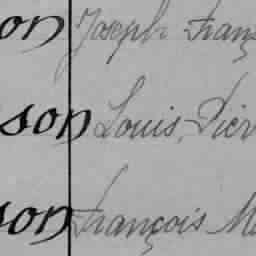 on Joseph Franç
son Louis, Pier
son François Ma